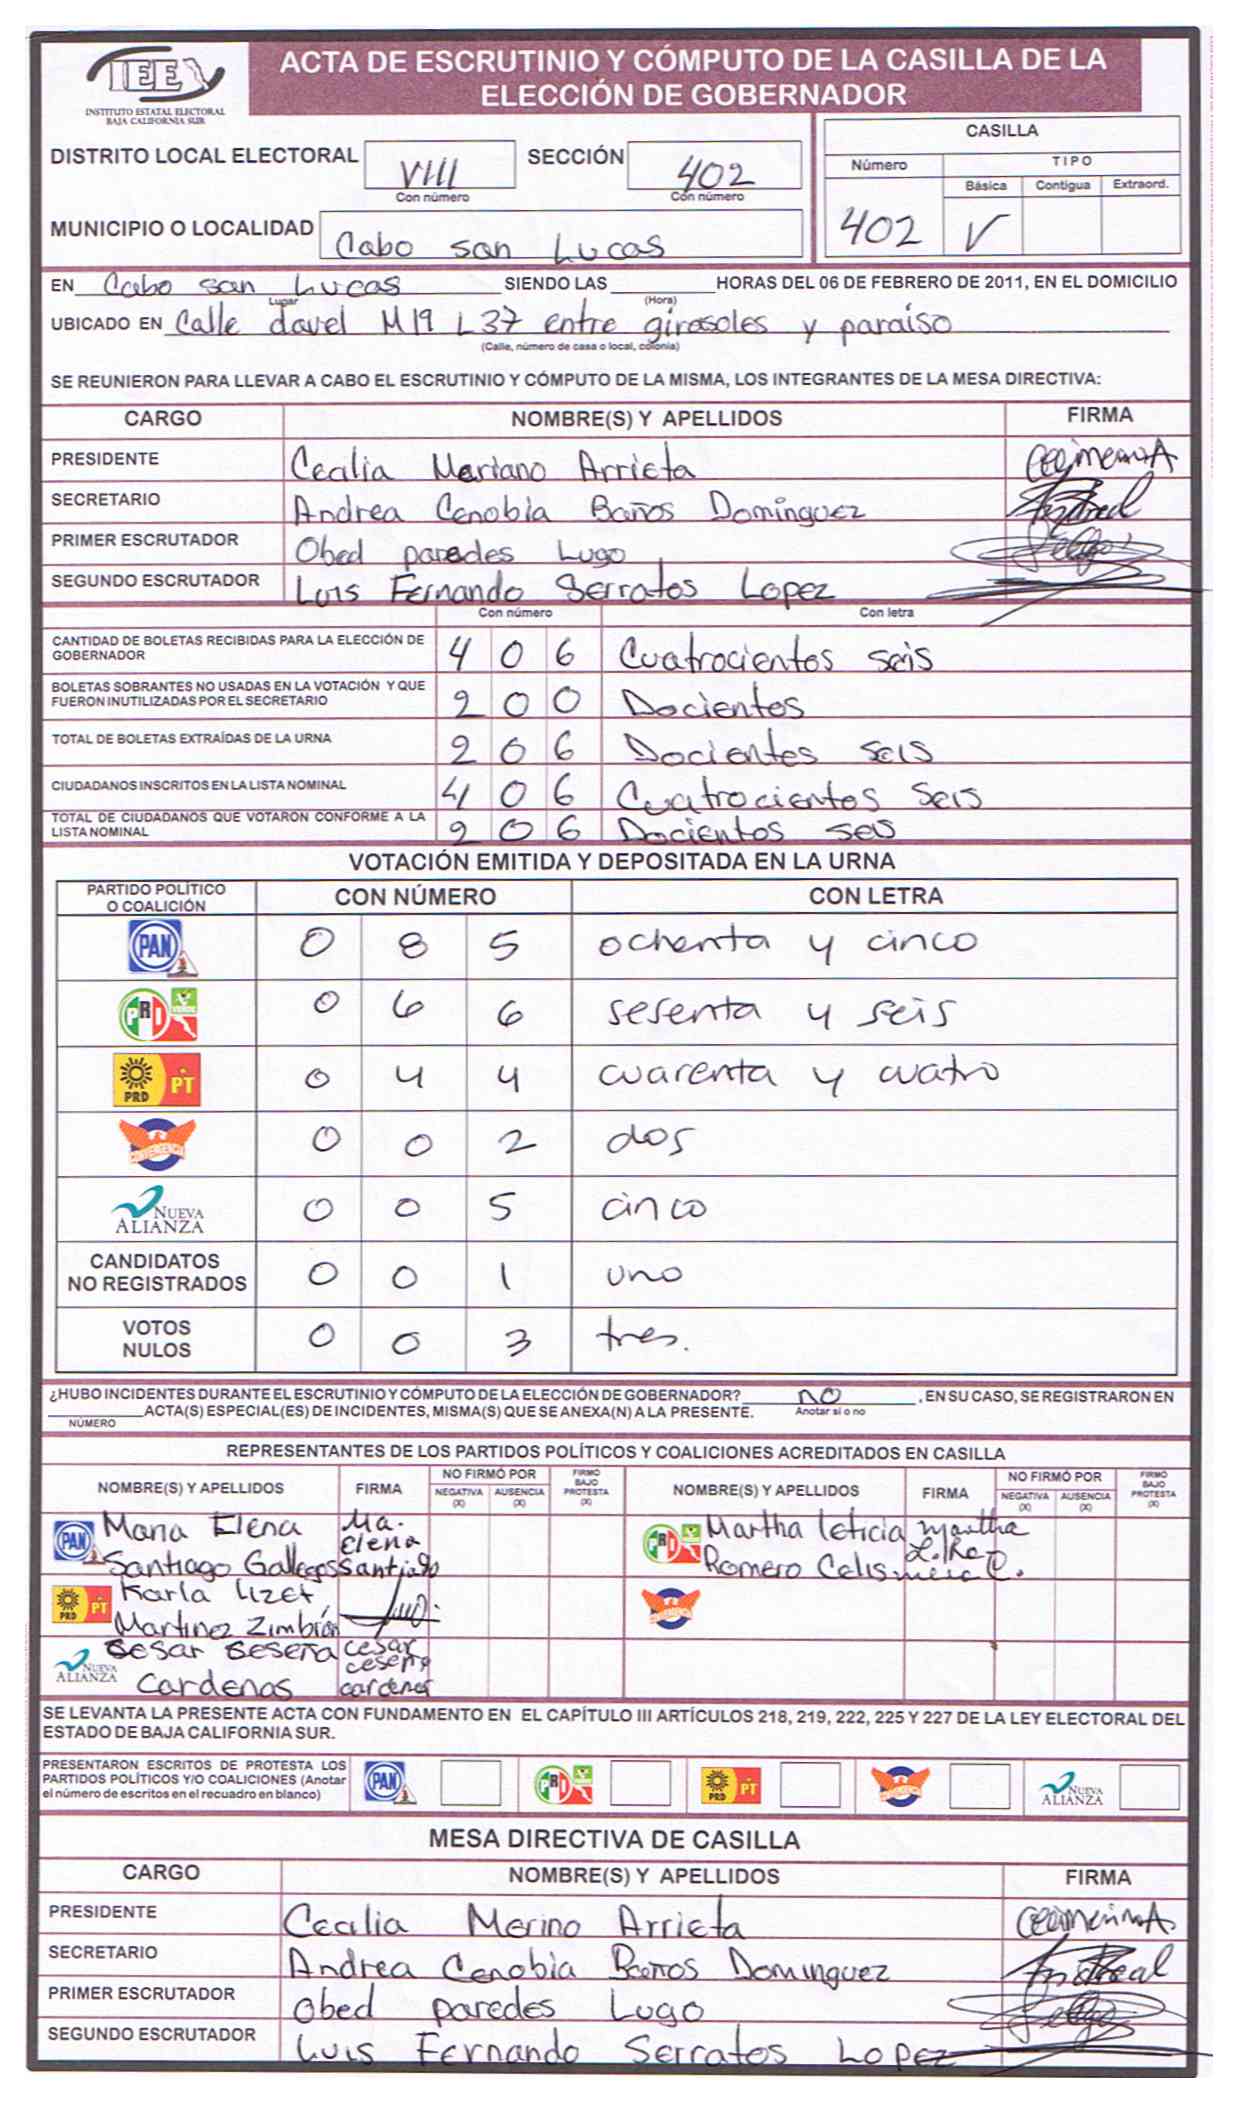 IEE
INSTITUTO ESTATAL ELECTORAL
BAJA CALIFORNIA SUR
ACTA DE ESCRUTINIO Y CÓMPUTO DE LA CASILLA DE LA
ELECCIÓN DE GOBERNADOR
DISTRITO LOCAL ELECTORAL VIII SECCIÓN 402
Con número Con número
MUNICIPIO O LOCALIDAD Cabo san Lucas
CASILLA
Número TIPO
Básica Contigua Extraord.
402 √
EN Cabo san Lucas SIENDO LAS HORAS DEL 06 DE FEBRERO DE 2011, EN EL DOMICILIO
Lugar (Hora)
UBICADO EN Calle davel M19 L37 entre girasoles y paraíso
(Calle, número de casa o local, colonia)
SE REUNIERON PARA LLEVAR A CABO EL ESCRUTINIO Y CÓMPUTO DE LA MISMA, LOS INTEGRANTES DE LA MESA DIRECTIVA:
CARGO NOMBRE(S) Y APELLIDOS FIRMA
PRESIDENTE Cecilia Mariano Arrieta
SECRETARIO Andrea Cenobia Baños Domínguez
PRIMER ESCRUTADOR Obed paredes Lugo
SEGUNDO ESCRUTADOR Luis Fernando Serratos Lopez
Con número Con letra
CANTIDAD DE BOLETAS RECIBIDAS PARA LA ELECCIÓN DE
GOBERNADOR 4 0 6 Cuatrocientos seis
BOLETAS SOBRANTES NO USADAS EN LA VOTACIÓN Y QUE
FUERON INUTILIZADAS POR EL SECRETARIO 2 0 0 Docientos
TOTAL DE BOLETAS EXTRAÍDAS DE LA URNA 2 0 6 Docientos seis
CIUDADANOS INSCRITOS EN LA LISTA NOMINAL 4 0 6 Cuatrocientos Seis
TOTAL DE CIUDADANOS QUE VOTARON CONFORME A LA
LISTA NOMINAL 2 0 6 Docientos seis
VOTACIÓN EMITIDA Y DEPOSITADA EN LA URNA
PARTIDO POLÍTICO
O COALICIÓN CON NÚMERO CON LETRA
PAN 0 8 5 ochenta y cinco
PRI VERDE 0 6 6 sesenta y seis
PRD PT 0 4 4 cuarenta y cuatro
CONVERGENCIA 0 0 2 dos
NUEVA
ALIANZA 0 0 5 cinco
CANDIDATOS
NO REGISTRADOS 0 0 1 uno
VOTOS
NULOS 0 0 3 tres.
¿HUBO INCIDENTES DURANTE EL ESCRUTINIO Y CÓMPUTO DE LA ELECCIÓN DE GOBERNADOR? NO , EN SU CASO, SE REGISTRARON EN
ACTA(S) ESPECIAL(ES) DE INCIDENTES, MISMA(S) QUE SE ANEXA(N) A LA PRESENTE. Anotar si o no
NÚMERO
REPRESENTANTES DE LOS PARTIDOS POLÍTICOS Y COALICIONES ACREDITADOS EN CASILLA
NOMBRE(S) Y APELLIDOS FIRMA NO FIRMÓ POR NEGATIVA (X) AUSENCIA (X) FIRMÓ BAJO PROTESTA (X) NOMBRE(S) Y APELLIDOS FIRMA NO FIRMÓ POR NEGATIVA (X) AUSENCIA (X) FIRMÓ BAJO PROTESTA (X)
PAN Maria Elena Santiago Gallegos Ma. Elena Santiago
PRI VERDE Martha leticia Romero Celis
PRD PT Karla Lizet, Martinez Zimbrón
CONVERGENCIA
NUEVA ALIANZA Cesar Ceseña Cardenas cesar ceseña cardenas
SE LEVANTA LA PRESENTE ACTA CON FUNDAMENTO EN EL CAPÍTULO III ARTÍCULOS 218, 219, 222, 225 Y 227 DE LA LEY ELECTORAL DEL
ESTADO DE BAJA CALIFORNIA SUR.
PRESENTARON ESCRITOS DE PROTESTA LOS
PARTIDOS POLÍTICOS Y/O COALICIONES (Anotar
el número de escritos en el recuadro en blanco)
PAN PRI VERDE PRD PT CONVERGENCIA NUEVA ALIANZA
MESA DIRECTIVA DE CASILLA
CARGO NOMBRE(S) Y APELLIDOS FIRMA
PRESIDENTE Cecilia Merino Arrieta
SECRETARIO Andrea Cenobia Baños Dominguez
PRIMER ESCRUTADOR Obed paredes Lugo
SEGUNDO ESCRUTADOR Luis Fernando Serratos Lopez